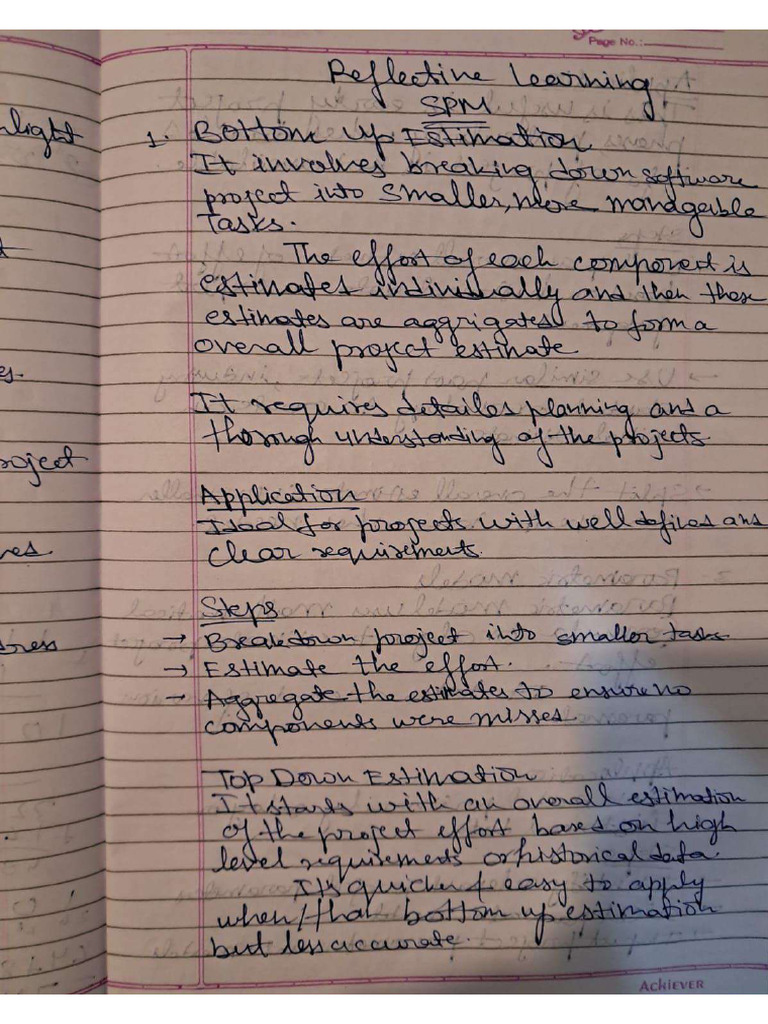 Page No.:
Reflective Learning
SPM
1. Bottom Up Estimation
It involves breaking down software
project into smaller, more manageable
Tasks.
The effort of each component is
estimates individually and then these
estimates are aggrigates to form a
overall project estimate
It requires detailes planning and a
thorough understanding of the projects
Application
Ideal for projects with well defines and
clear requirements.
Steps
→ Breakdown project into smaller tasks
→ Estimate the effort.
→ Aggregate the estimates to ensure no
components were misses.
Top Down Estimation
It starts with an overall estimation
of the project effort based on high
level requirements or historical data.
It is quicker & easy to apply
when/than bottom up estimation
but less accurate.
ACHIEVER